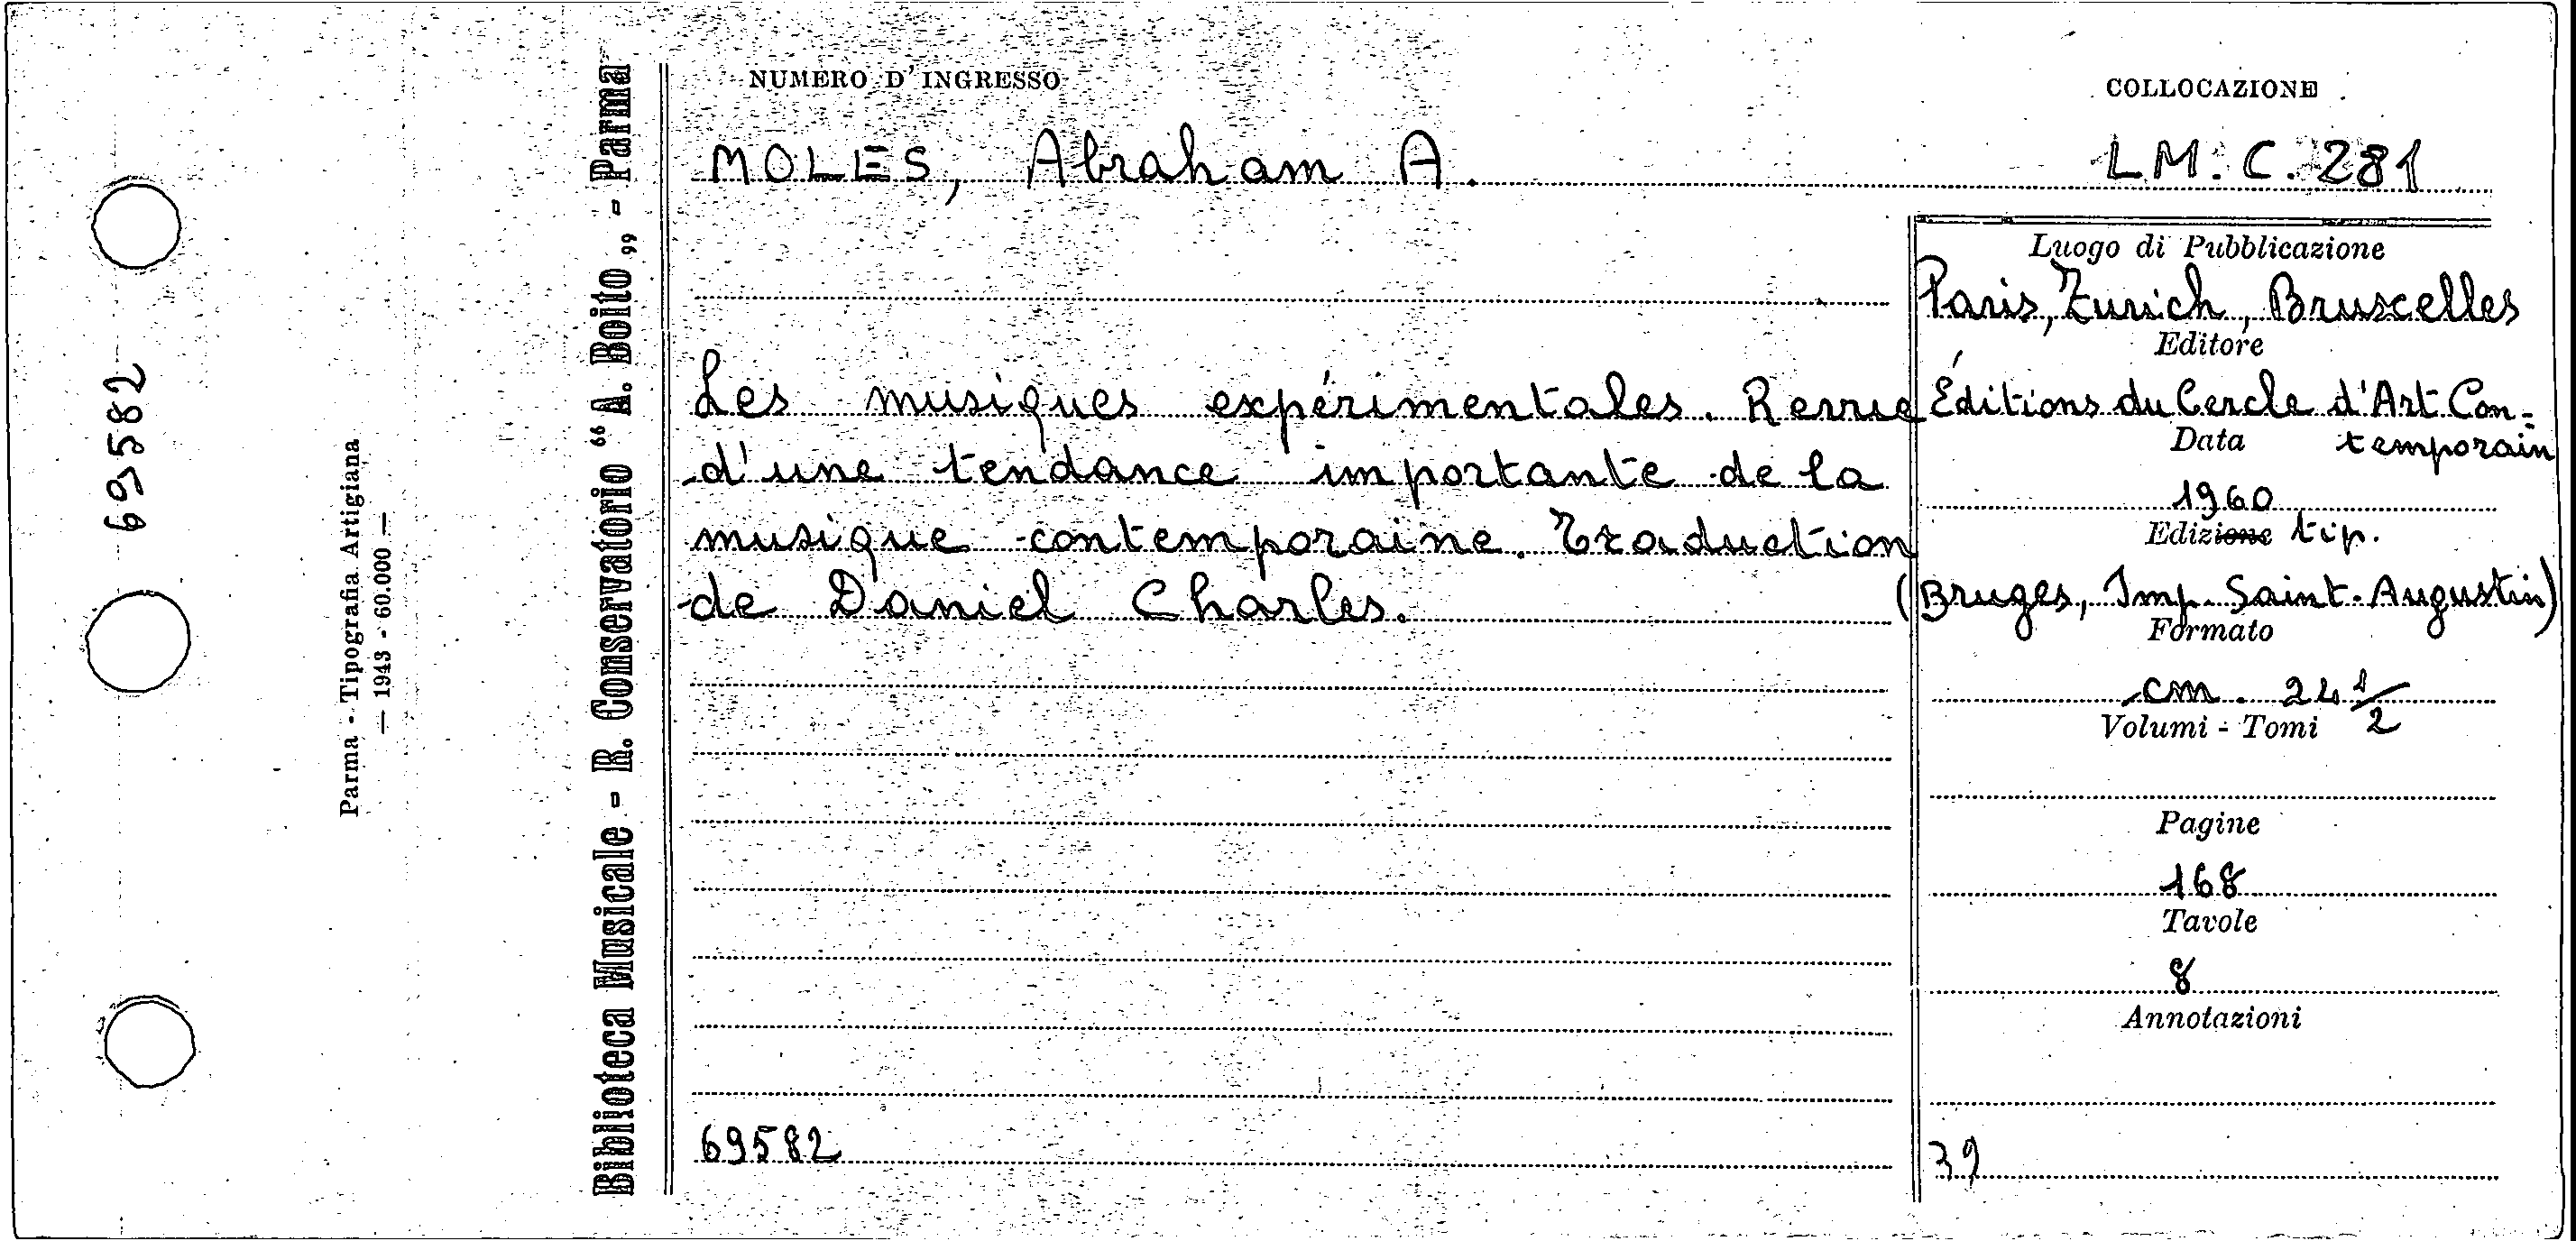 69582
Parma - Tipografia Artigiana
— 1943 - 60.000 —
Biblioteca Musicale - R. Conservatorio “A. Boito„ - Parma
NUMERO D'INGRESSO
COLLOCAZIONE
MOLES, Abraham A.
LM. C. 281
Luogo di Pubblicazione
Paris, Zurich, Bruscelles
Editore
Les musiques expérimentales. Revue
Éditions du Cercle d'Art Con-
Data
temporain
d'une tendance importante de la
1960
Edizione tip.
musique contemporaine. Traduction
de Daniel Charles.
(Bruges, Imp. Saint-Augustin)
Formato
cm. 24 1/2
Volumi - Tomi
Pagine
168
Tavole
8
Annotazioni
69582
39